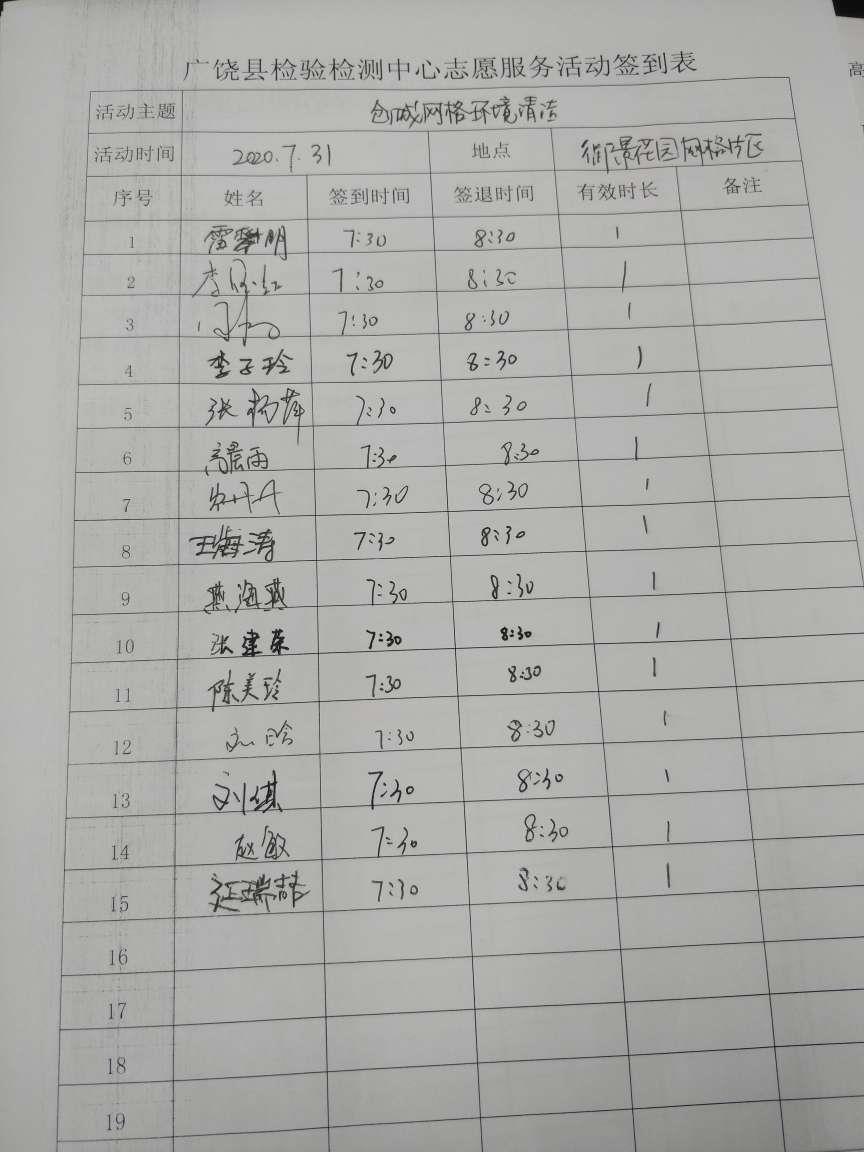 广饶县检验检测中心志愿服务活动签到表
活动主题 创城网格环境清洁
活动时间 2020.7.31 地点 街景花园网格片区
序号 姓名 签到时间 签退时间 有效时长 备注
1 雷 明 7:30 8:30 1
2 李 红 7:30 8:30 1
3 7:30 8:30 1
4 李子玲 7:30 8:30 1
5 张杨萍 7:30 8:30 1
6 高晨雨 7:30 8:30 1
7 丹丹 7:30 8:30 1
8 王海涛 7:30 8:30 1
9 燕海燕 7:30 8:30 1
10 张建荣 7:30 8:30 1
11 陈美玲 7:30 8:30 1
12 刘 7:30 8:30 1
13 刘健 7:30 8:30 1
14 赵敏 7:30 8:30 1
15 延瑞喆 7:30 8:30 1
16
17
18
19
高